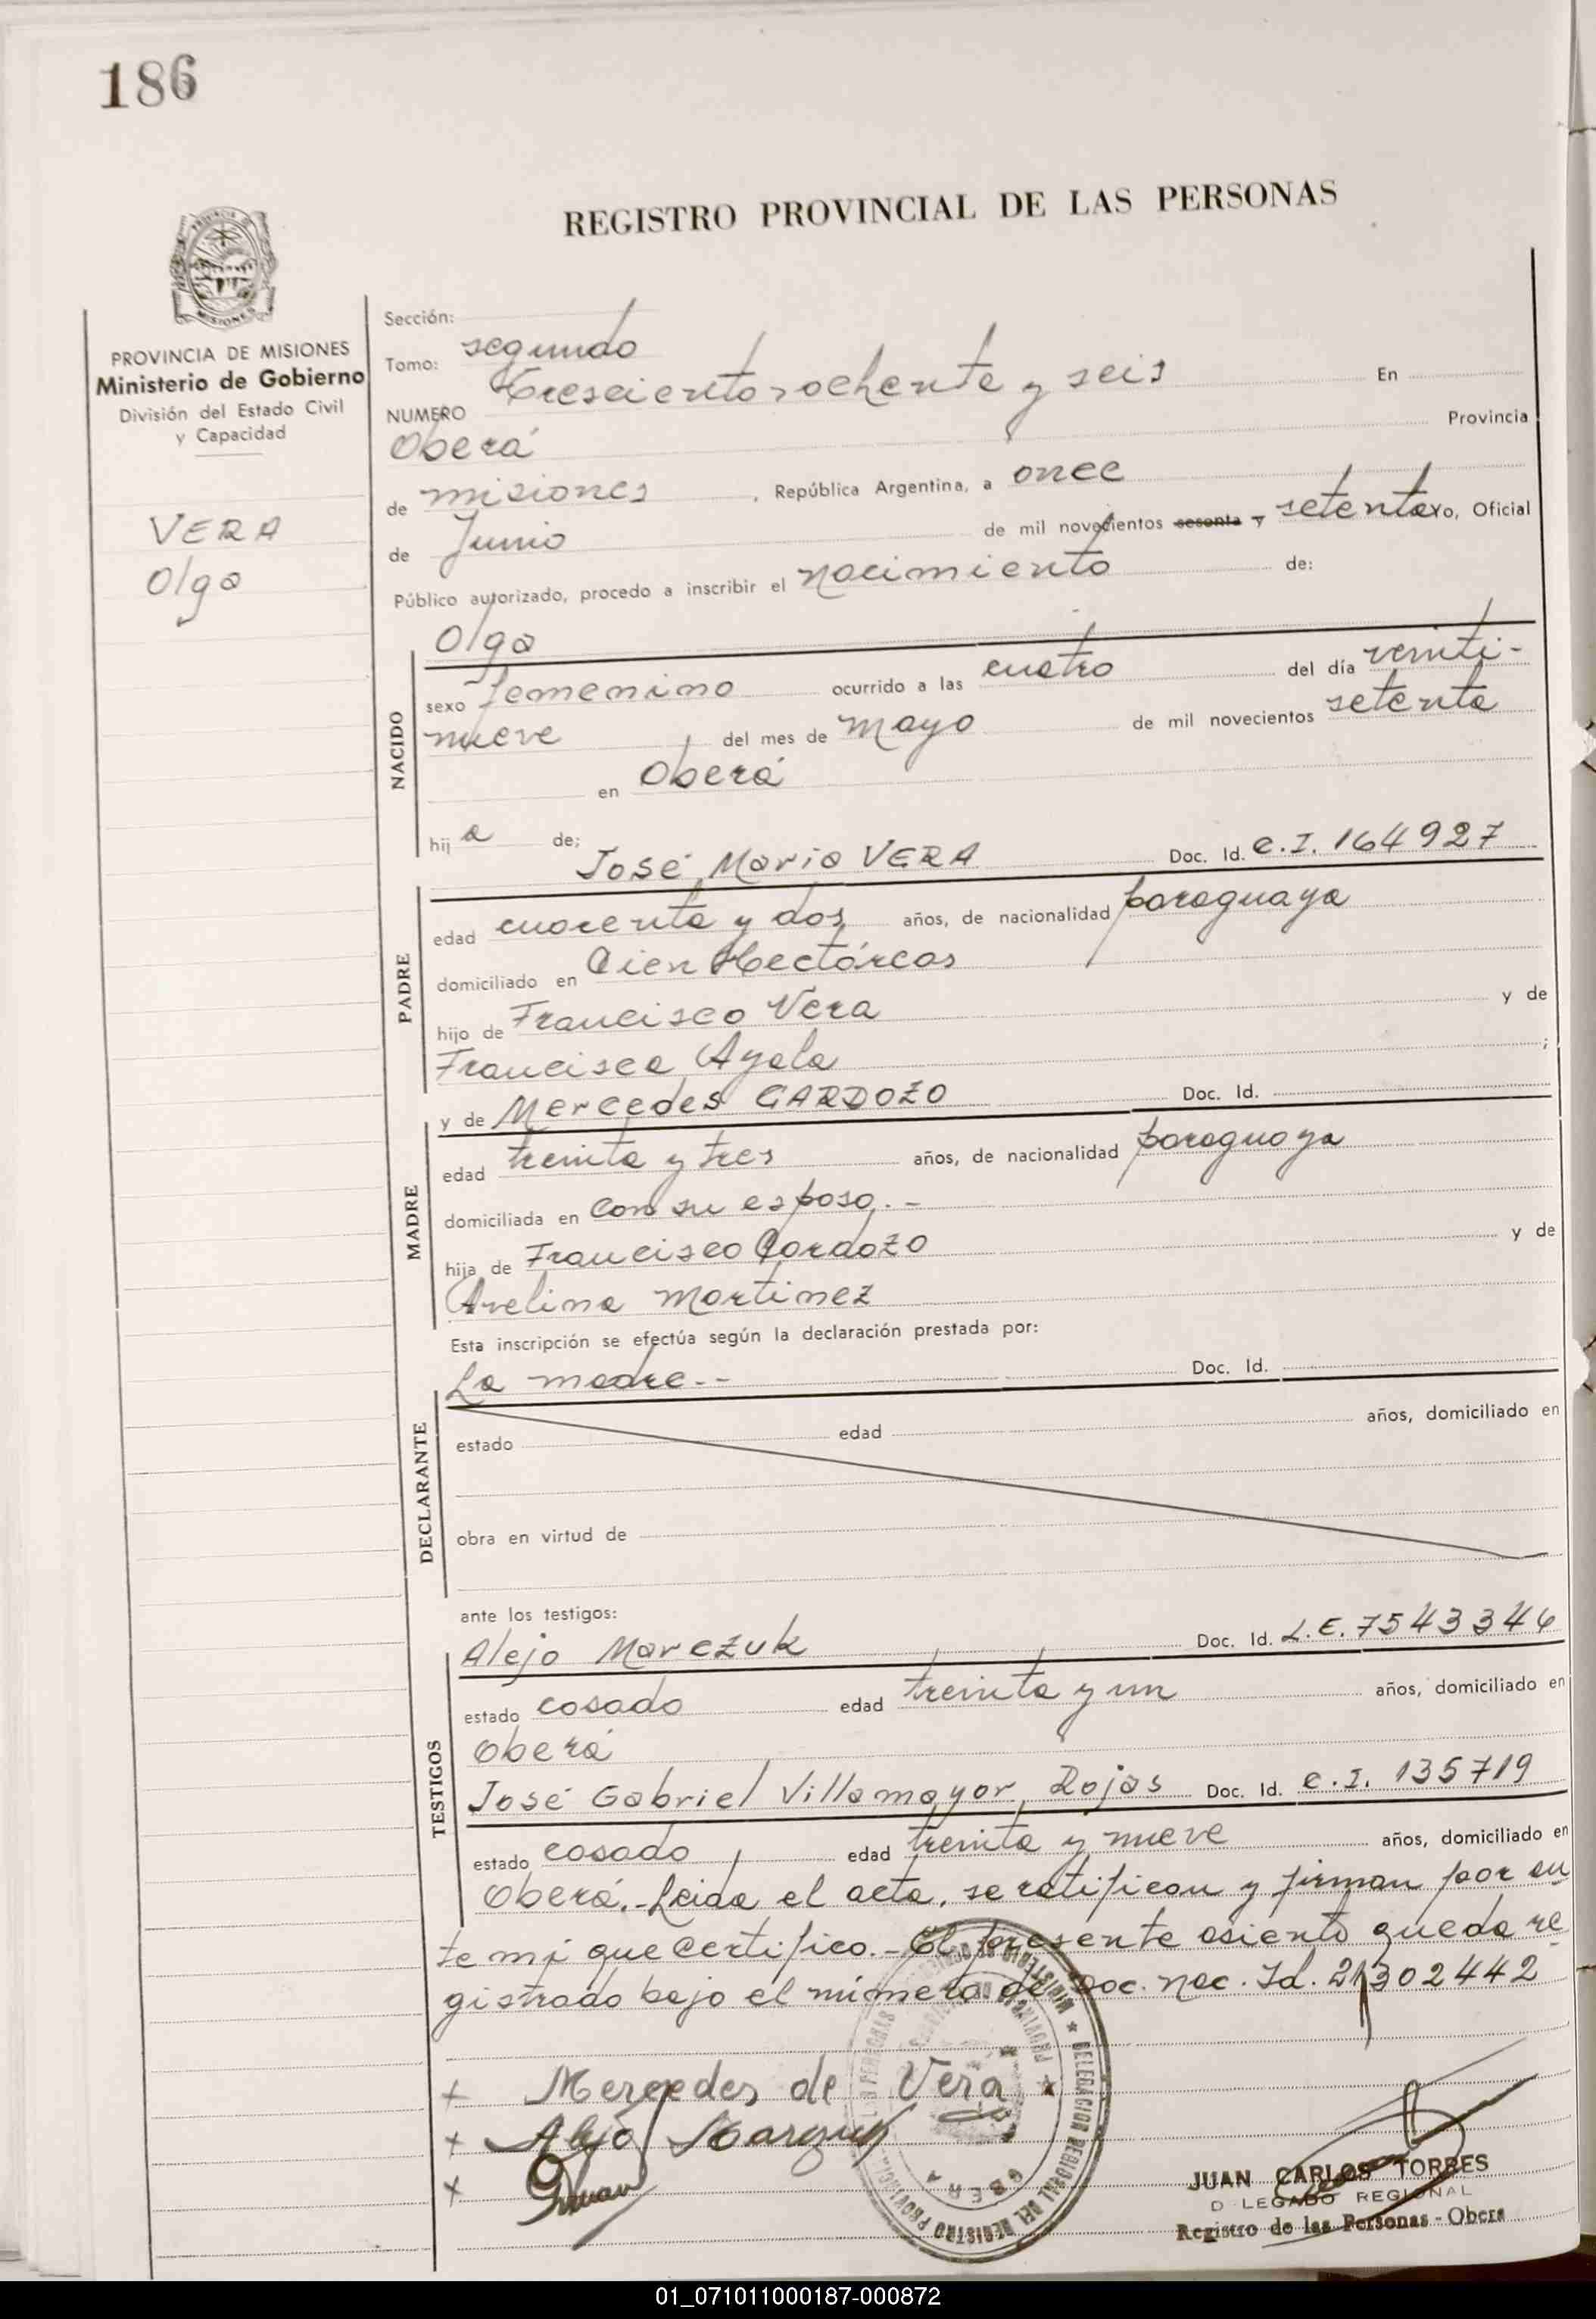 186
REGISTRO PROVINCIAL DE LAS PERSONAS
PROVINCIA DE MISIONES
Ministerio de Gobierno
División del Estado Civil
y Capacidad
VERA
Olga
Sección:
Tomo: segundo
NUMERO Trescientos ochenta y seis En
Oberá Provincia
de misiones, República Argentina, a once
de Junio de mil novecientos sesenta y setenta yo, Oficial
Público autorizado, procedo a inscribir el nacimiento de:
Olga
NACIDO
sexo femenino ocurrido a las cuatro del día veinti-
nueve del mes de mayo de mil novecientos setenta
en Oberá
hij a de;
José Maria VERA Doc. Id. C.I. 164927
PADRE
edad cuarenta y dos años, de nacionalidad paraguaya
domiciliado en Cien Hectáreas
hijo de Francisco Vera y de
Francisca Ayala ;
y de Mercedes CARDOZO Doc. Id.
MADRE
edad treinta y tres años, de nacionalidad paraguaya
domiciliada en Con su esposo.-
hija de Francisco Cardozo y de
Avelina Martinez
Esta inscripción se efectúa según la declaración prestada por:
La madre.-- Doc. Id.
DECLARANTE
estado edad años, domiciliado en
obra en virtud de
ante los testigos:
Alejo Marczuk Doc. Id. L.E. 7543346
TESTIGOS
estado casado edad treinta y un años, domiciliado en
Oberá
José Gabriel Villamayor Rojas Doc. Id. C.I. 135719
estado casado edad treinta y nueve años, domiciliado en
Oberá.-Leida el acta, se ratifican y firman por an
te mi que certifico.- El presente asiento queda re
gistrado bajo el número de Doc. nac. Id. 21302442
+ Mercedes de Vera
+ Alejo Marczuk
+
DELEGACION REGIONAL DEL REGISTRO PROVINCIAL DE LAS PERSONAS
OBERA
JUAN CARLOS TORRES
D LEGADO REGIONAL
Registro de las Personas - Obera
01_071011000187-000872